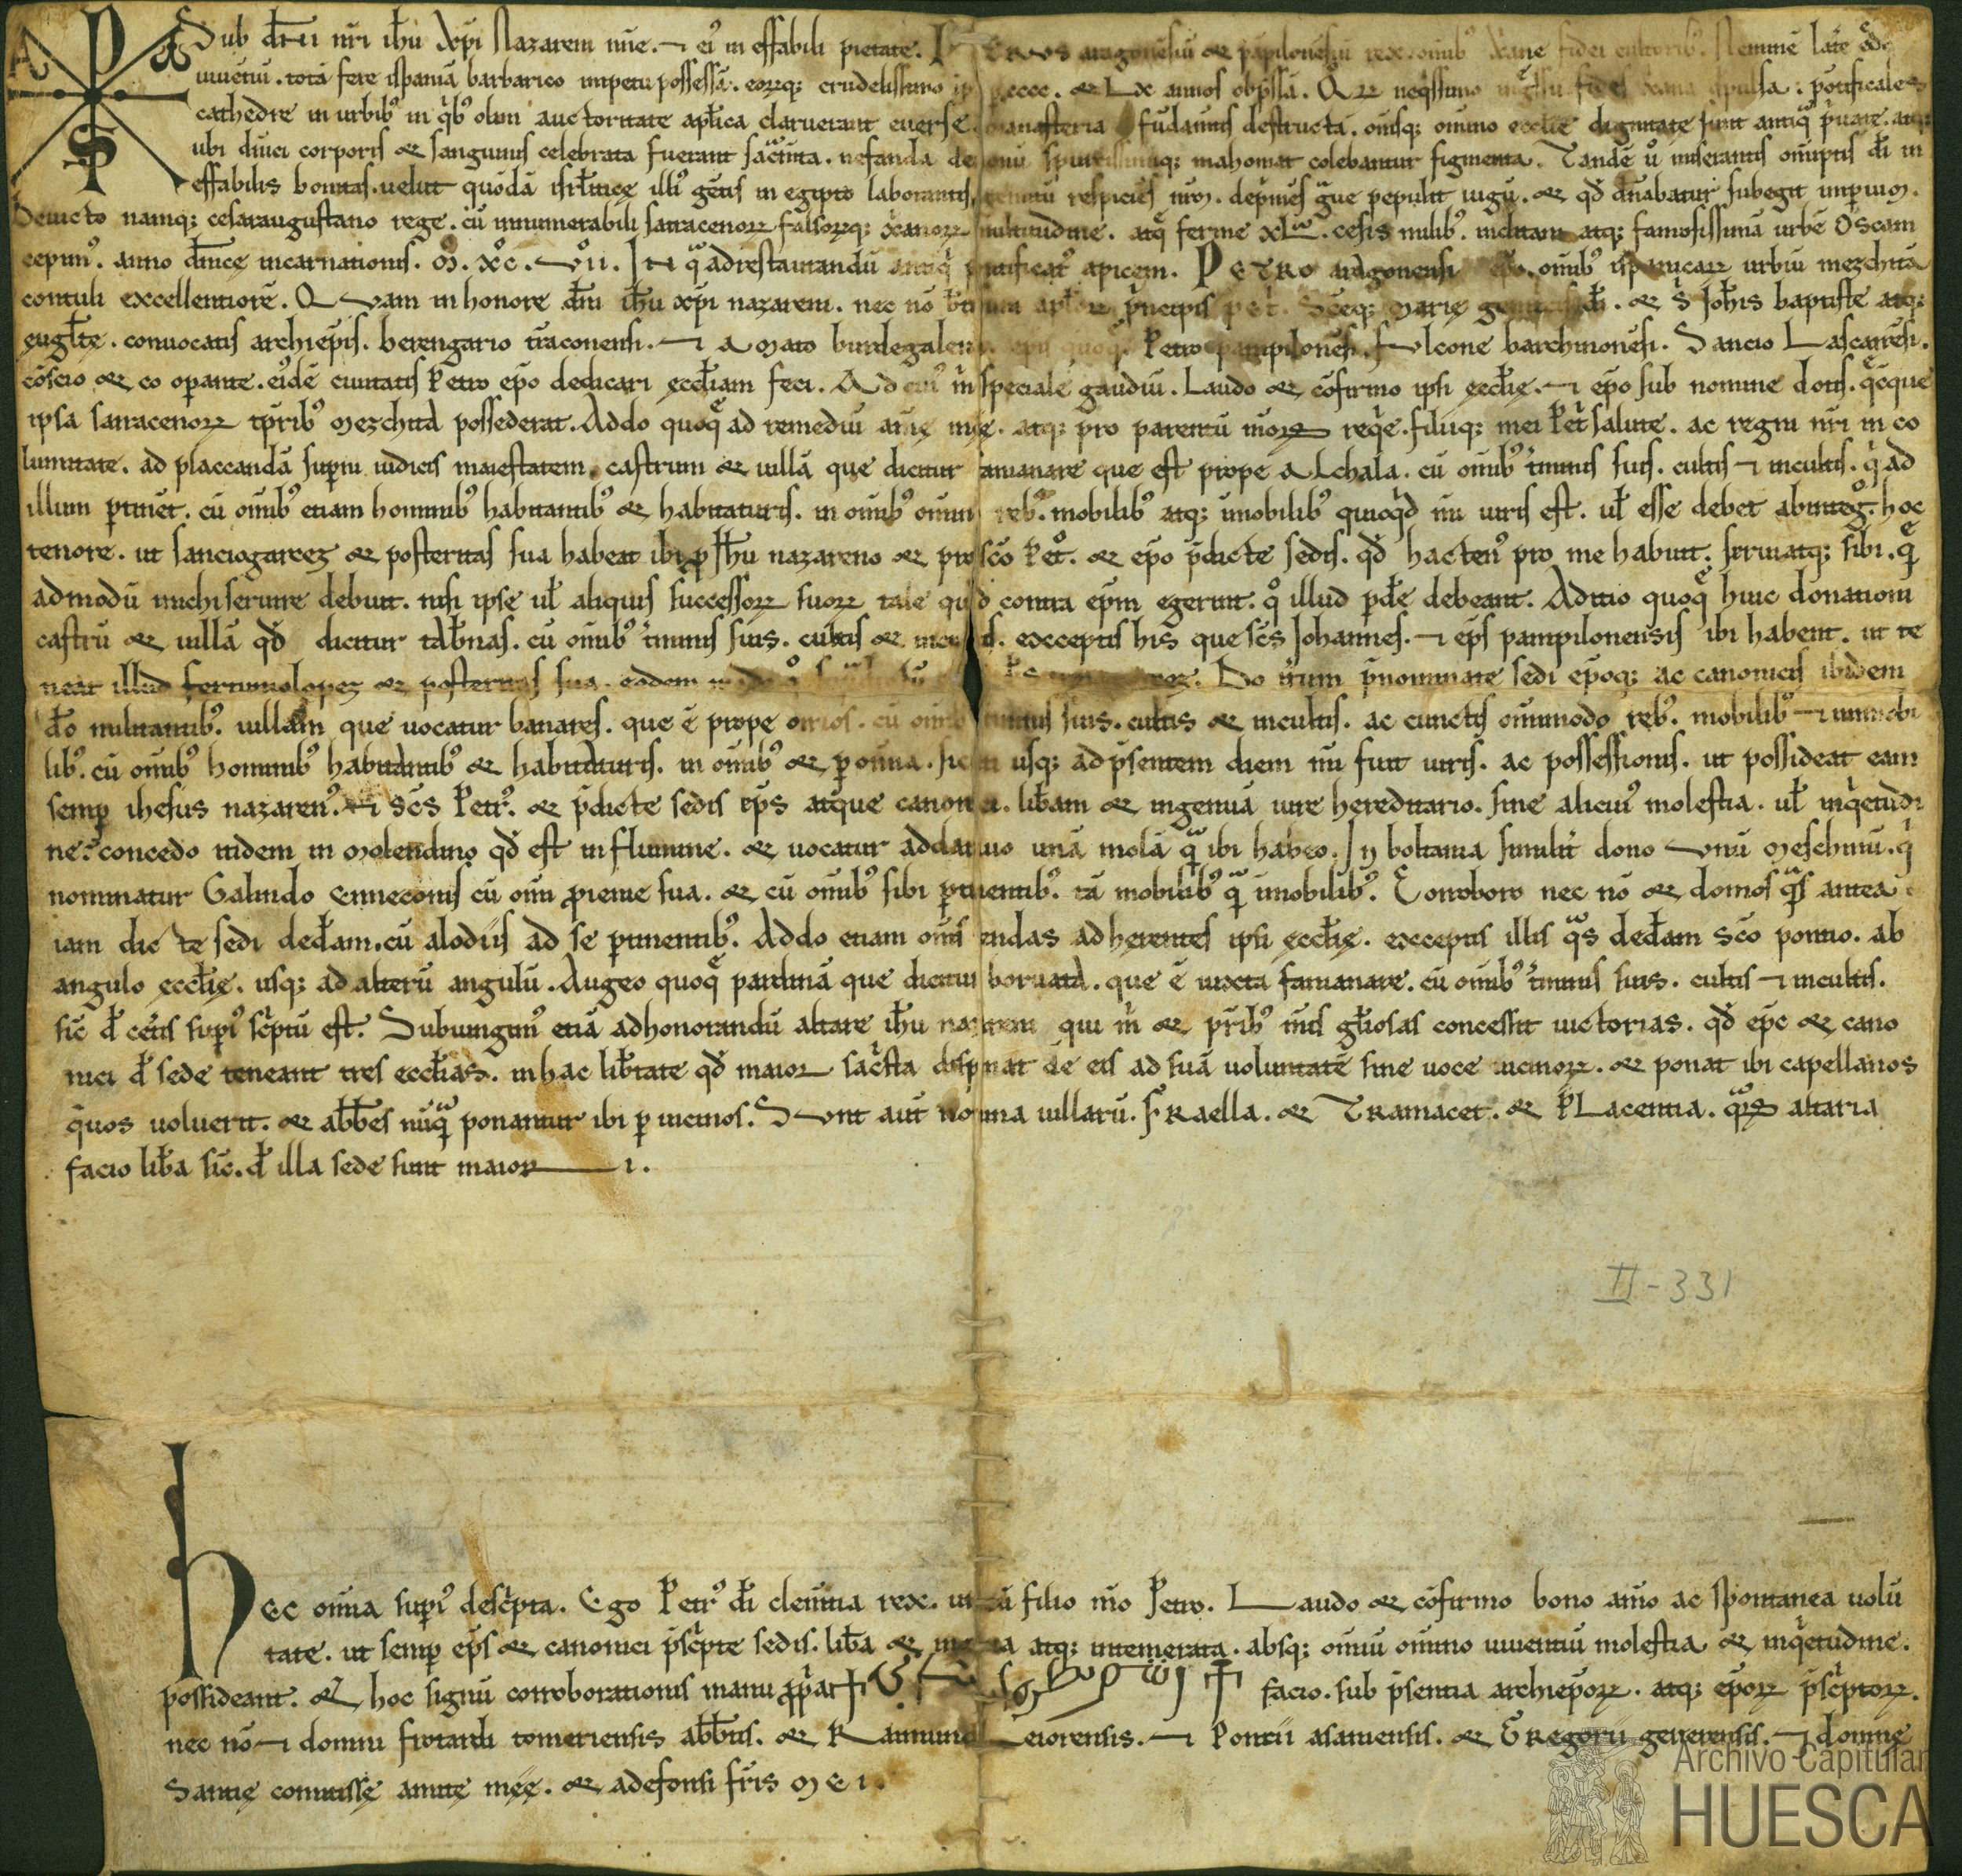 Sub dn̄i nr̄i ih̄u Xp̄i Nazareni nn̄e. et ei᷒ in effabili pietate. P ETRVS aragonēsiū et pāpilonēsiū rex. omīb᷒ Xāne fidei cultorib᷒. Neminē latē
uiuētiū. totā fere ispaniā barbarico impetu possessā. eorūq; crudelissimo cccc. et Lx annos obp̄ssā. fides xāna: pōtificales
cathedre in urbib᷒ in qͥb᷒ olim auctoritate apl̄ica claruerant euerse. monasteria fūdamīs destructa. om̄isq; omīno eccl̄ie dignitate sunt antiqͣ pͥuate. atq;
ubi diuici corporis et sanguinis celebrata fuerant sacͣmta. nefanda de onū spurcissimiq; mahomat colebantur figmenta. Tandē u° miserantis om̄iptīs dī in
effabilis bonitas. uelut quōdā isrl̄iticę illi᷒ gētis in egipto laborantis, gemitū respiciēs nr̄m. dep̄mēs gͣue pepulit iugū. et qd̄ dn̄abatur subegit imperium.
Deuicto namq; cesaraugustano rege. cū innumerabili sarracenorꝝ falsorꝝq; xānorꝝ multitudine. atqͣ ferme xLta. cesis milib᷒. inclitam atq; famosissimā urbē Oscam
cepim᷒. anno dn̄icę incarnationis. M̊. XC̊. VI̊I. In qͣ adrestaurandū antiqͣ pontificat᷒ apicem. PETRO aragonensi ep̄o. omīb᷒ ispanicarꝝ urbiū mezchitā
contuli excellentiorē. Quam in honore dn̄i ih̄u xp̄i nazareni. nec nō bti simi apl̄orꝝ pͥncipis petͥ. Scēq; Marię genitricis dī. et s̄ Joh̄is baptiste atq;
ęuglt̄e. conuocatis archiep̄is. berengario traconensi. et aMato burdegalensi. ep̄is quoqͣ. Petro pampilonēsi. Fulcone barchinonēsi. Sancio Lascarrēsi.
cōscio et co opante. ei᷒dē ciuitatis Petro ep̄o dedicari eccl̄iam feci. Ad cui᷒ mͥ speciale gaudiū. Laudo et cōfirmo ipsi ęccl̄ię. et ep̄o sub nomine dotis. qͣcque
ipsa sarracenorꝝ tp̄rib᷒ Mezchita possederat. Addo quoqͣ ad remediū anīę męę. atq; pro parentū meorꝝ reqͥe. filiiq; mei Petͥ salute. ac regni nr̄i in co
lumitate. ad placcandā supni iudicis maiestatem. castrum et uillā que dicitur famanare que est prope aLchala. cū omīb᷒ tͥminis suis. cultis et incultis. qͥ ad
illum ptinēt. cū omīb᷒ etiam hominib᷒ habitantib᷒ et habitaturis. in omīb᷒ omīn reb᷒. mobilib᷒ atq; īmobilib᷒ quicqͥd mī iuris est. ul̄ esse debet abintegͦ. hoc
tenore. ut sanciogarcez et posteritas sua habeat ibi p Jh̄u nazareno et pro scō Petͦ. et ep̄o p̄dicte sedis. qd̄ hacten᷒ pro me habuit. seruiatq; sibi. qͣ
admodū michi seruire debuit. nisi ipse ul̄ aliquis successorꝝ suorꝝ tale quid contra ep̄m egerint. qͦ illud pd̄e debeant. Aditio quoqͣ huic donationi
castrū et uillā qd̄ dicitur tab̄nas. cū omīb᷒ tͥminis suis. cultis et incultis. exceptis his que scs̄ Johannes. et ep̄s pampilonensis ibi habent. ut te
neat illud fertuniolopez et posteritas sua. eodem modo Do itͥum p̄nominate sedi ep̄oq; ac canonicis ibidem
dō militantib᷒. uillam que uocatur banares. que ē prope orrios. cū omīb᷒ tͥminis suis. cultis et incultis. ac cunctis omīmodo reb᷒. mobilib᷒ et inmobi
lib᷒. cū omīb᷒ hominib᷒ habitantib᷒ et habitaturis. in omīb᷒ et p omīa. sicut usq; ad p̄sentem diem mī fuit iuris. ac possessionis. ut possideat eam
semp ihesus nazaren᷒. et scs̄ Petr᷒. et p̄dicte sedis ep̄s atque canonici. libam et ingenuā iure hereditario. sine alicui᷒ molestia. ul̄ inqͥetudi
ne. concedo itidem in Molendino qd̄ est in flumine. et uocatur addaruio unā molā qͣ ibi habeo. In boltania similit̄ dono Vnū Meschinū. qͥ
nominatur Galindo Enneconis cū omī pienie sua. et cū omīb᷒ sibi ptinentib᷒. tā mobilib᷒ qͣ īmobilib᷒. Corroboro nec nō et domos qͣs antea
iam dic te sedi ded̄am. cū alodiis ad se ptinentib᷒. Addo etiam omīs tendas adherentes ipsi ęccl̄ię. exceptis illis qͣs ded̄am scō pontio. ab
angulo ęccl̄ię. usq; ad alterū angulū. Augeo quoqͣ pardinā que dicitur boruata. que ē iuxta famanare. cū omīb᷒ tͥminis suis. cultis et incultis.
sic̄ d̄ cēt̄is supi᷒ scͥptū est. Subiungim᷒ etiā adhonorandū altare ih̄u nazareni qui mͥ et pr̄ib᷒ mīs gl̄iosas concessit uictorias. qd̄ ep̄c et cano
nici d̄ sede teneant tres ecclias. in hac lib̄tate qd̄ maior sacͥsta disponat de eis ad suā uoluntatē sine uoce uicinorꝝ. et ponat ibi capellanos
quos uoluerit. et abb̄es nūqͣ ponantur ibi p uicinos. Sunt aut̄ nomina uillarū. FRaella. et TRamacet. et PLacentia. qͣrꝝ altaria
facio lib̄a sic̄. d̄ illa sede sunt maiori.
II-331
hec omīa supi᷒ descͥpta. Ego Petr᷒ dī clem̄tia rex. una cū filio m̄o Petro. Laudo et cōfirmo bono aīo ac spontanea uolū
tate. ut semp ep̄s et canonici p̄scͥpte sedis. lib̄a et ingenua atq; intemerata. absq; omīū omīno uiuentiū molestia et inqͥetudine.
possideant. et hoc signū corroborationis manu ꝓpͥa facio. sub p̄sentia archiep̄orꝝ. atq; ep̄orꝝ p̄scͥptorꝝ.
nec nō et domni frotardi tomeriensis abb̄tis. et Raimundi Leiorensis. et Poncii asaniensis. et GRegorii geuerensis. et domnę
Santię comitissę amitę męę. et adefonsi fr̄is Mei.
Archivo Capitular
HUESCA